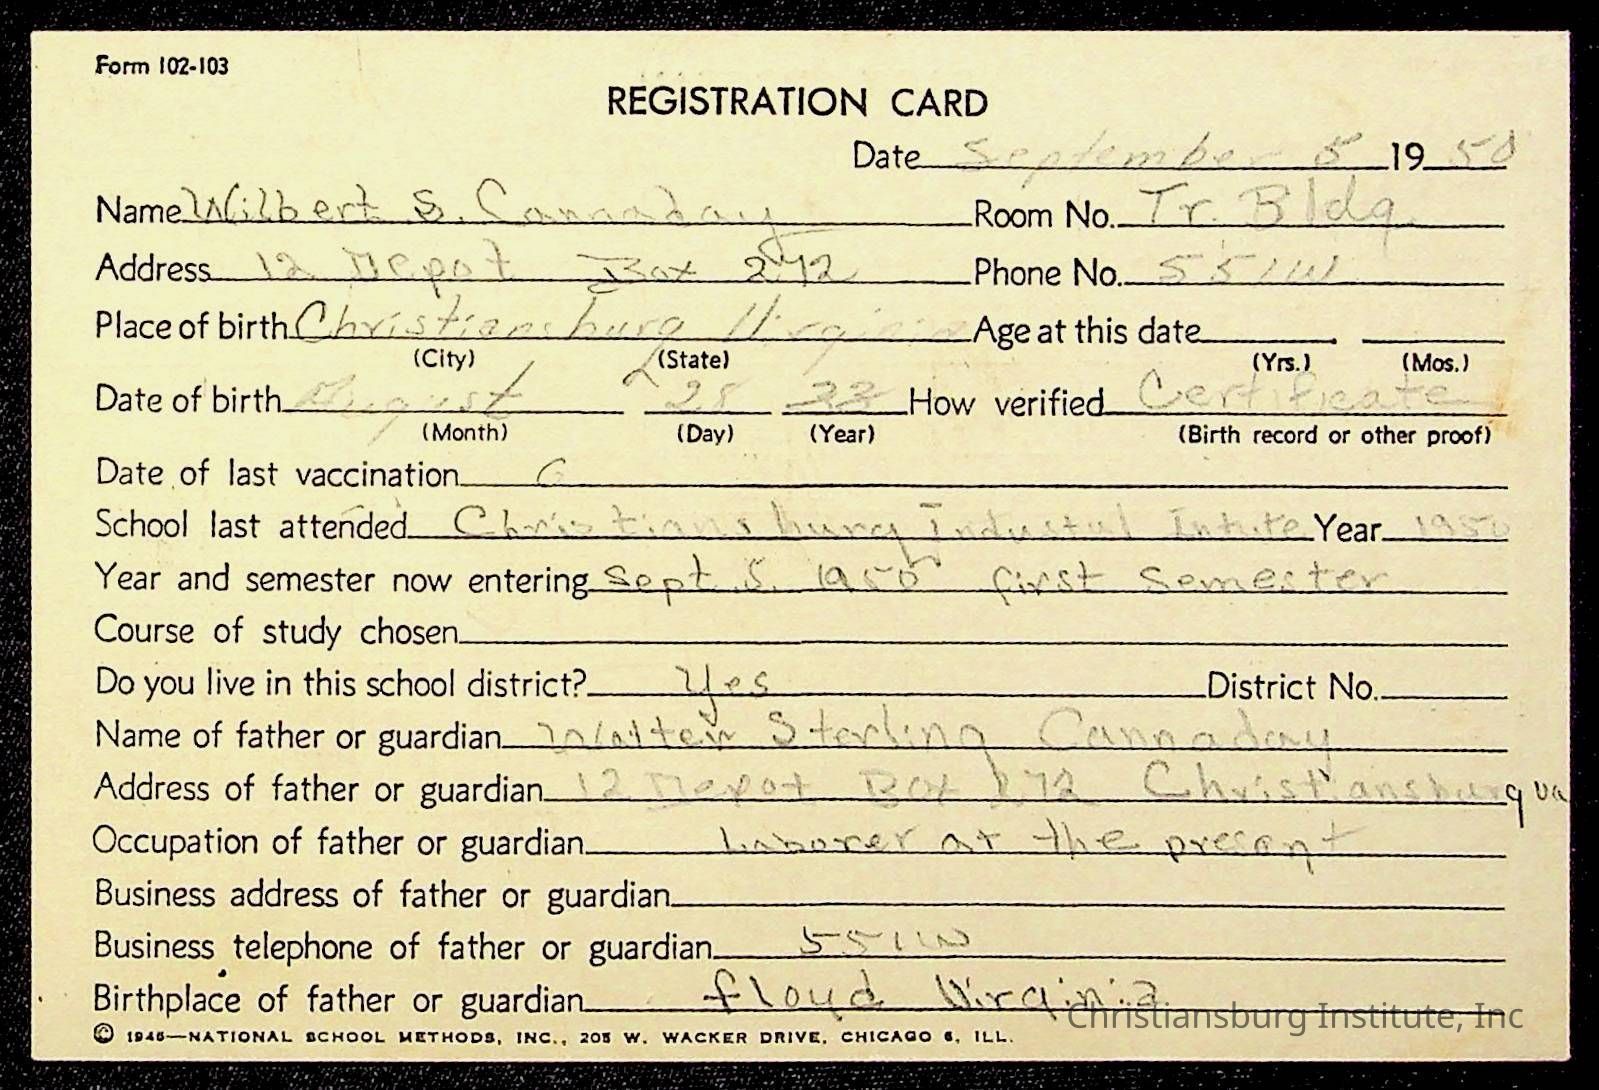 Form 102-103
REGISTRATION CARD
Date September 5 19 50
Name Wilbert S. Cannaday Room No. Tr. Bldg.
Address 12 Depot Box 272 Phone No. 551W
Place of birth Christiansburg Virginia Age at this date
(City) (State) (Yrs.) (Mos.)
Date of birth August 28 How verified Certificate
(Month) (Day) (Year) (Birth record or other proof)
Date of last vaccination
School last attended Christiansburg Industul Intute Year 1950
Year and semester now entering Sept 5, 1950 first Semester
Course of study chosen
Do you live in this school district? Yes District No.
Name of father or guardian Walter Sterling Cannaday
Address of father or guardian 12 Depot Box 272 Christiansburg va
Occupation of father or guardian Laborer at the present
Business address of father or guardian
Business telephone of father or guardian 551W
Birthplace of father or guardian floyd Virginia
Christiansburg Institute, Inc
© 1946—NATIONAL SCHOOL METHODS, INC., 205 W. WACKER DRIVE, CHICAGO 6, ILL.